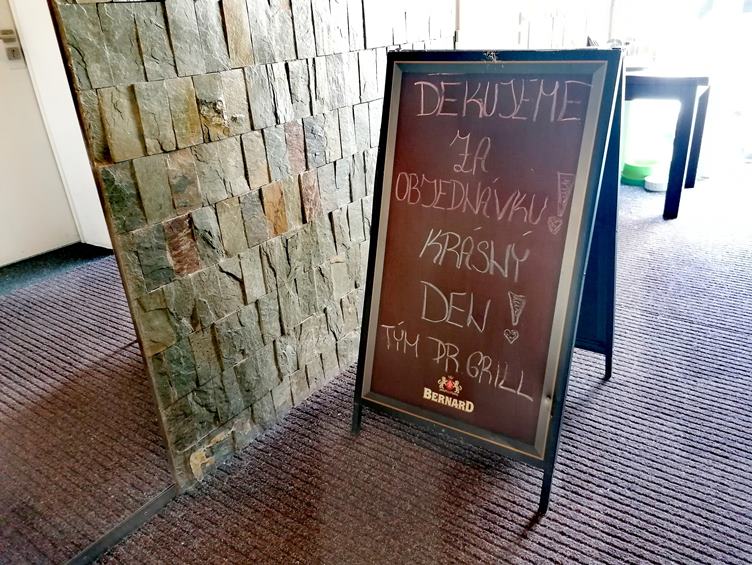 DĚKUJEME
ZA
OBJEDNÁVKU!
KRÁSNÝ
DEN!
TÝM DR. GRILL
BERNARD